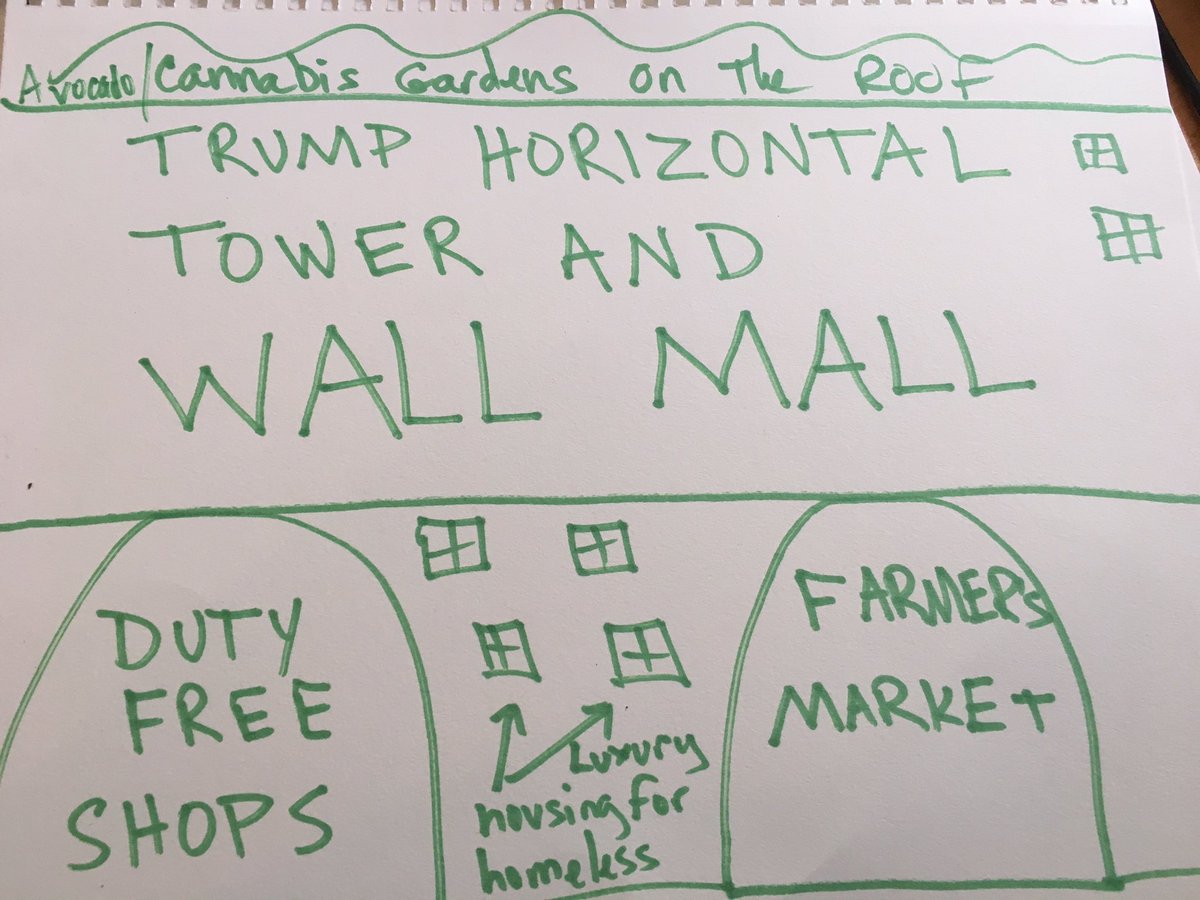 Avocado/Cannabis Gardens on The ROOF
TRUMP HORIZONTAL
TOWER AND
WALL MALL
DUTY
FREE
SHOPS
Luxury
housing for
homeless
FARMERS
MARKET